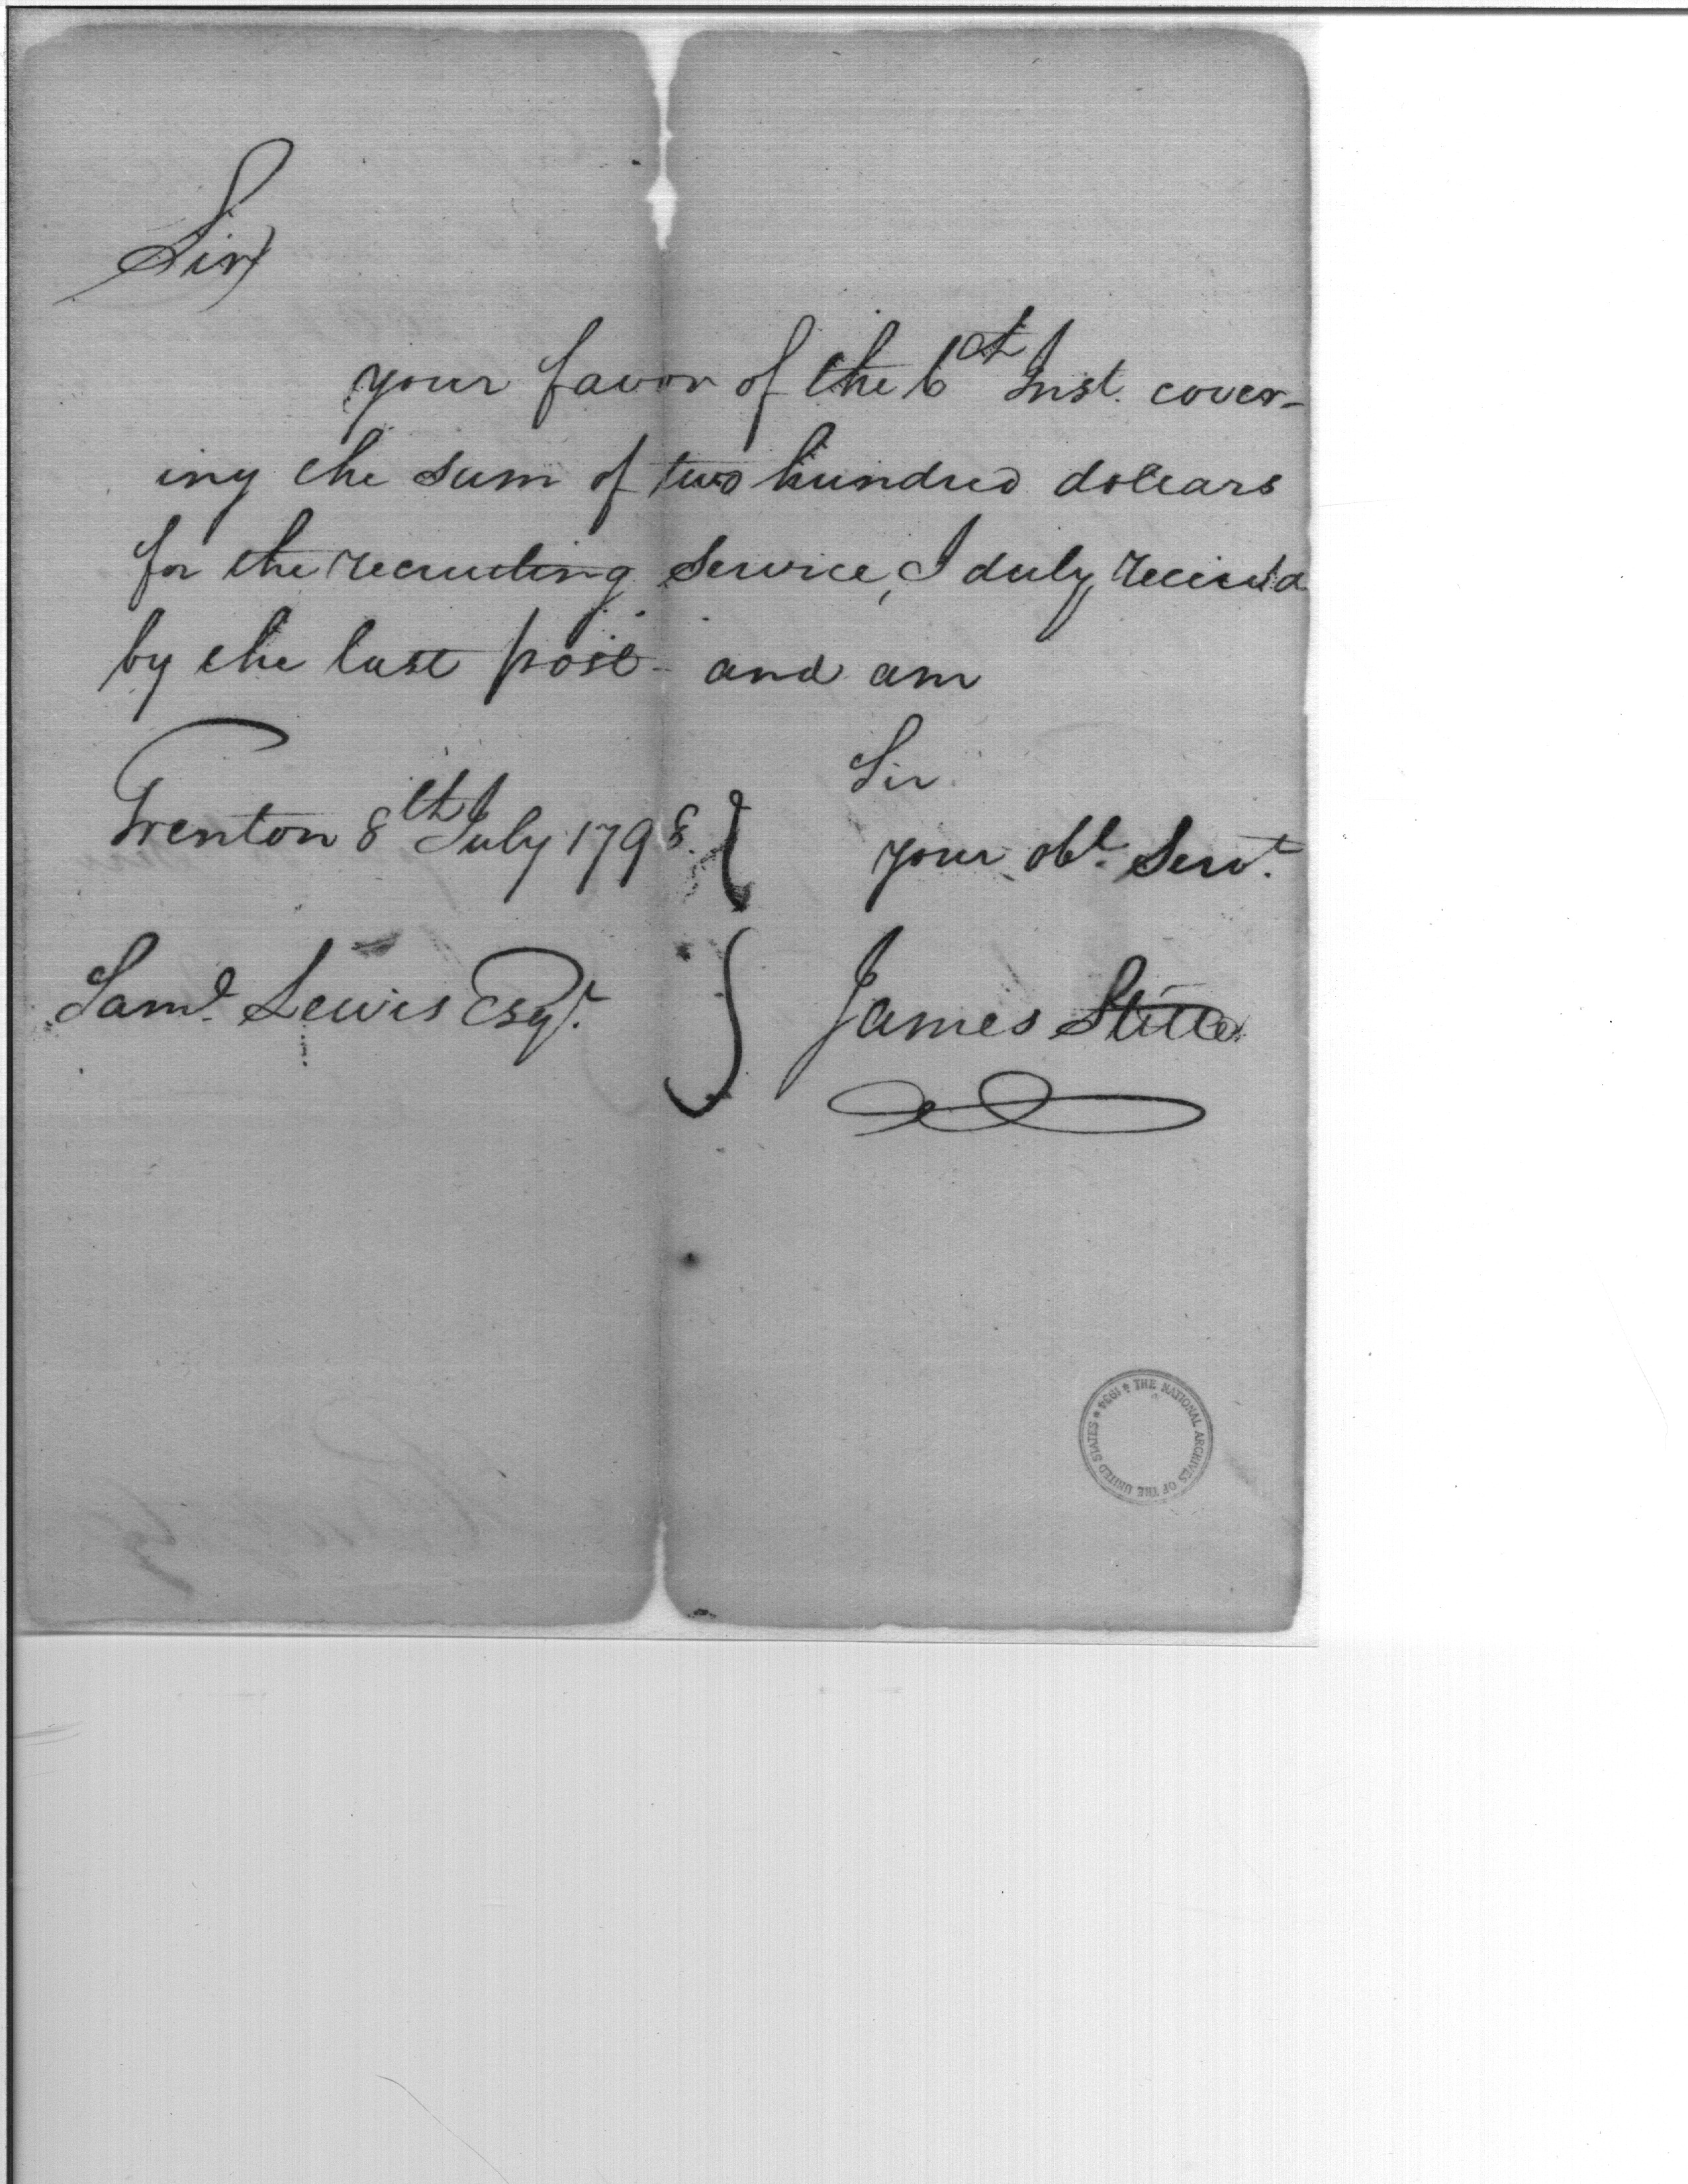 Sir
your favor of the 6th Inst. cover-
ing the sum of two hundred dollars
for the recruiting service, I duly receiv'd
by the last post - and am
Sir
Trenton 8th July 1798.
your obt. Servt.
Saml. Lewis Esqr.
James Stille
THE NATIONAL ARCHIVES OF THE UNITED STATES * 1934 *